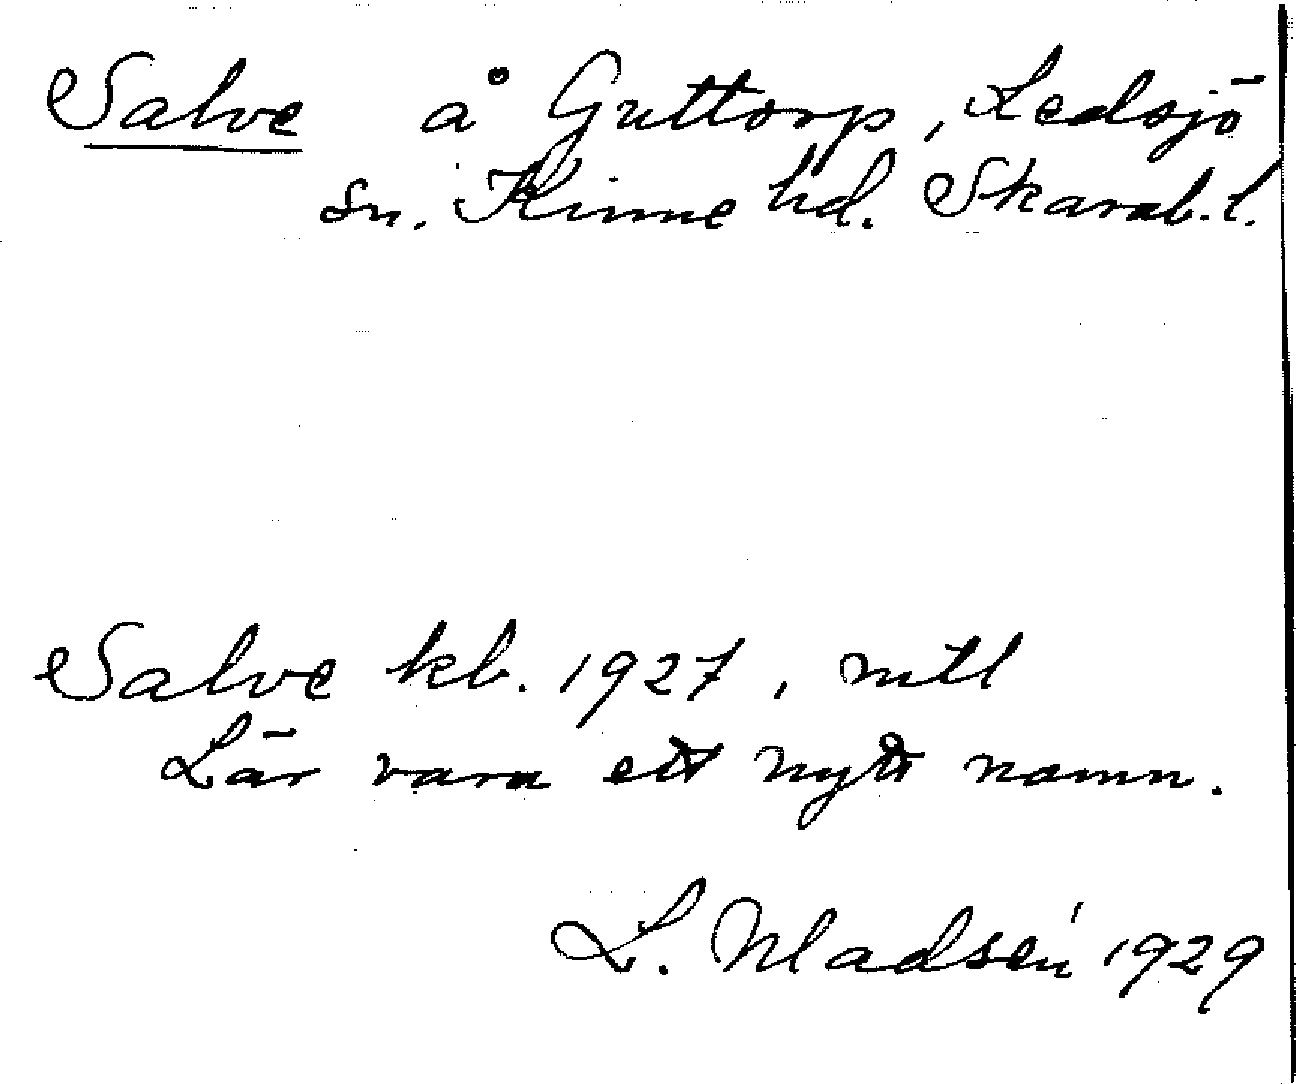 Salve å Guttorp, Ledsjö
sn. Kinne hd. Skarab. l.
Salve kb. 1927, mtl
Lär vara ett nytt namn.
L. Madsén 1929